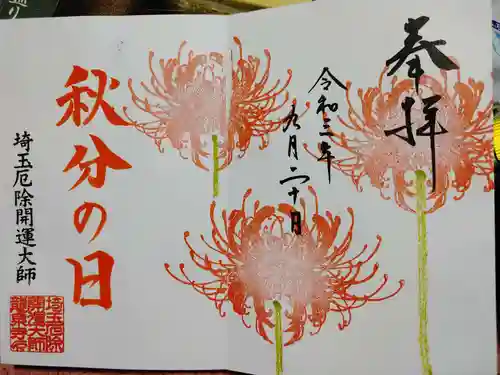 奉拝
令和三年
九月二十日
秋分の日
埼玉厄除開運大師
埼玉厄除
開運大師
龍泉寺印